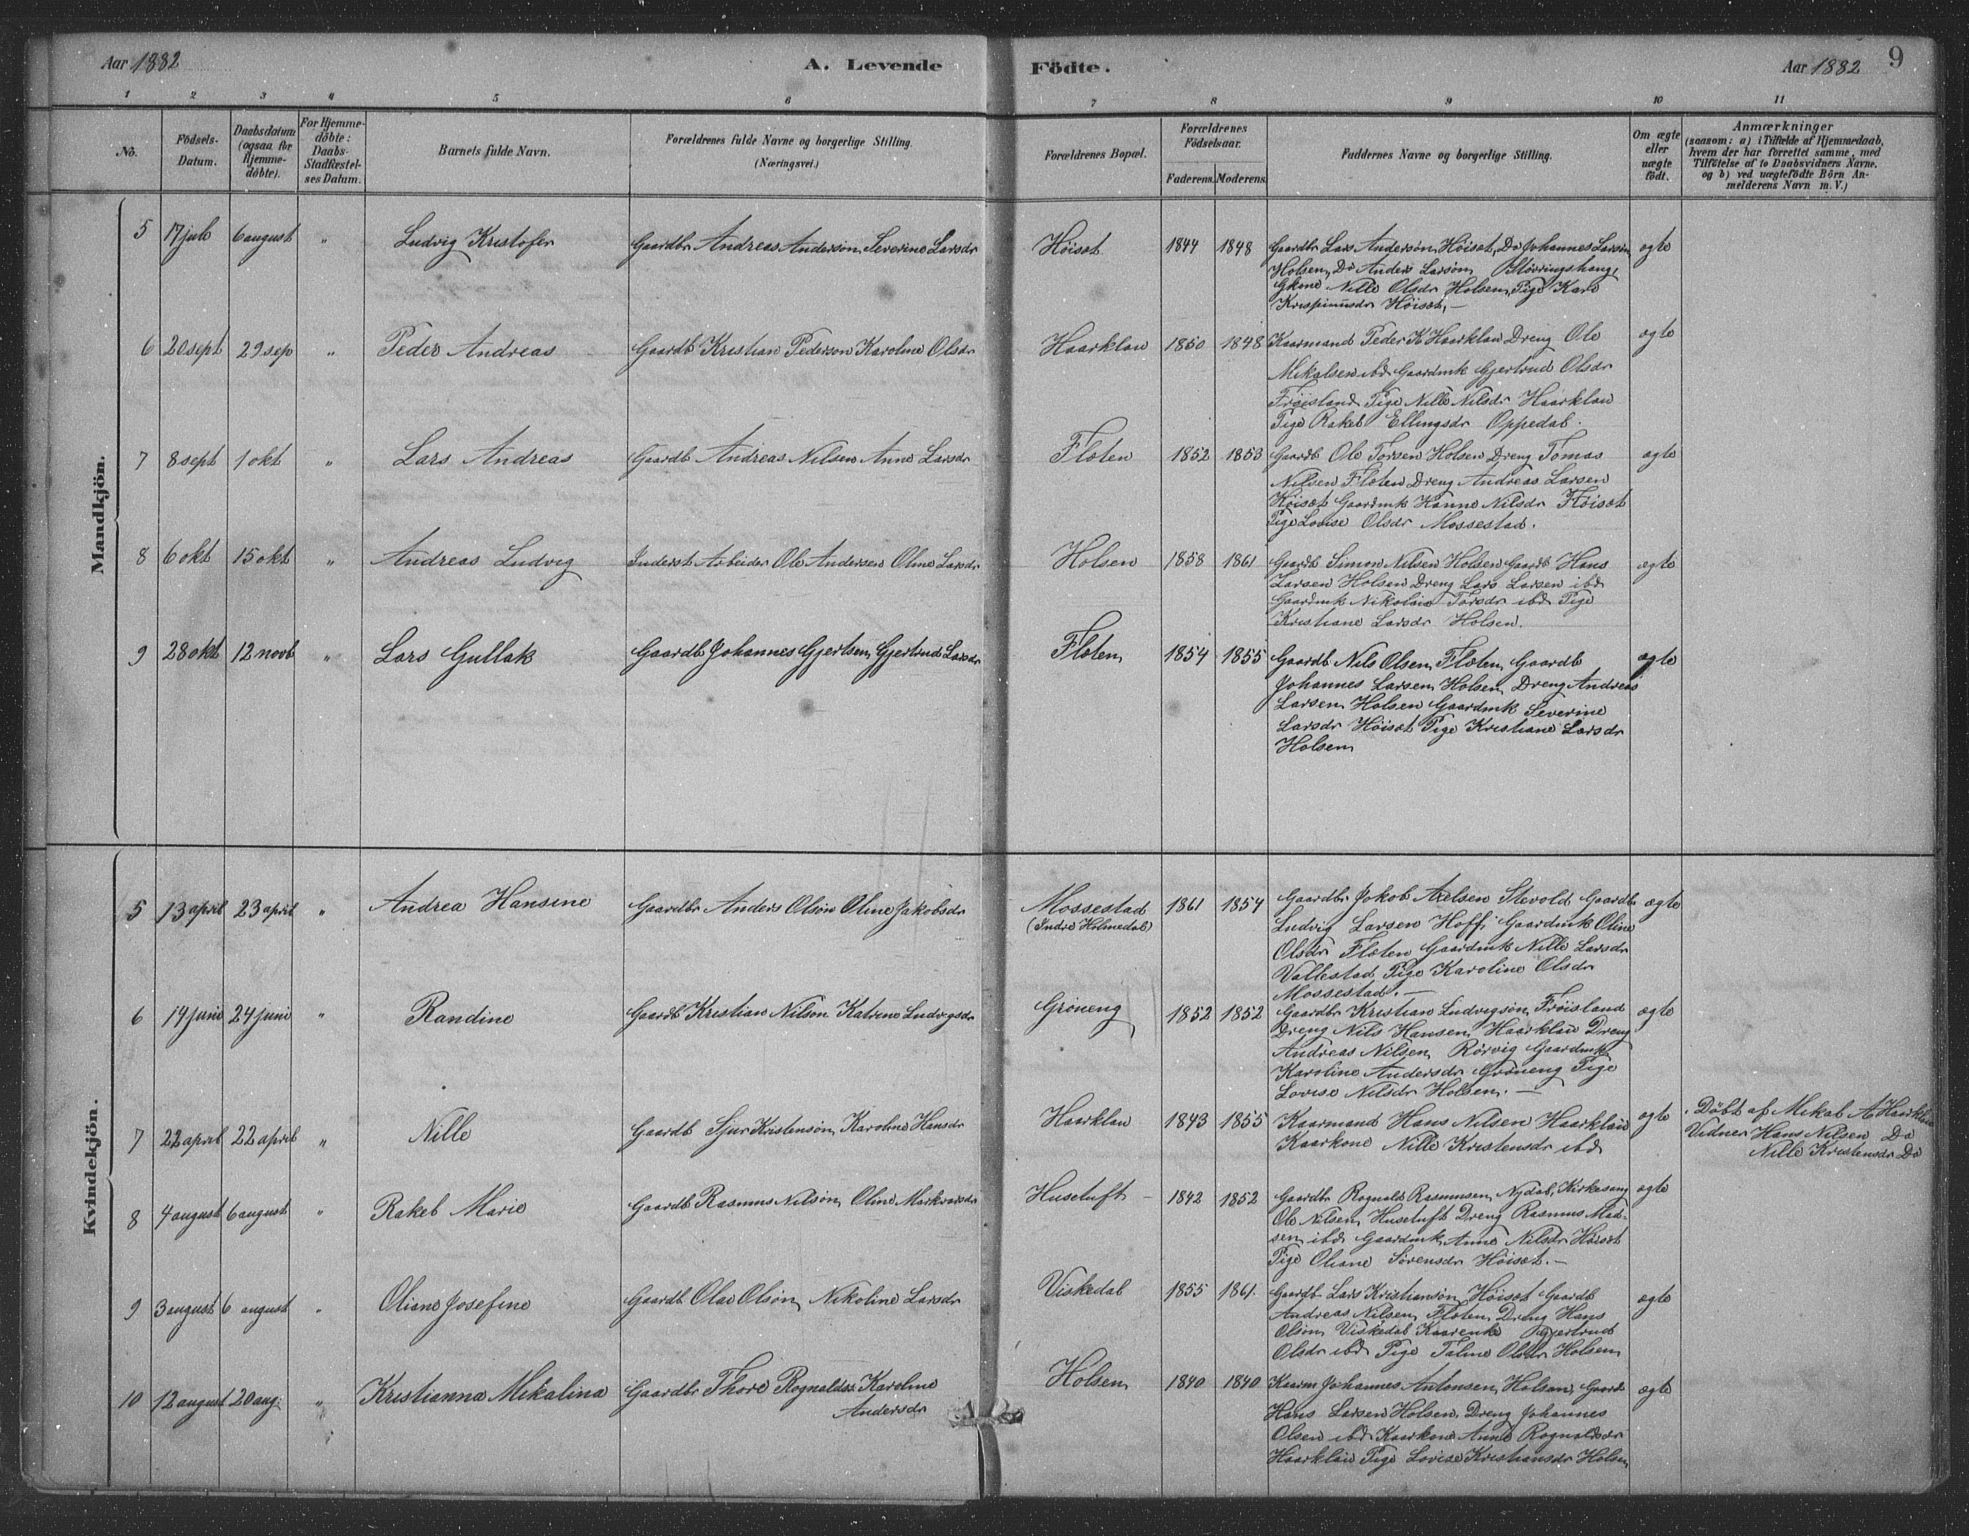 Aar 1882 A. Levende Födte. Aar 1882 9
1 2 3 4 5 6 7 8 9 10 11
No. Födsels-Datum. Daabsdatum (ogsaa for Hjemme-döbte). For Hjemme-döbte: Daabs-Stadfæstel-ses Datum. Barnets fulde Navn. Forældrenes fulde Navne og borgerlige Stilling. (Næringsvei.) Forældrenes Bopæl. Forældrenes Födselsaar. Faderens. Moderens. Faddernes Navne og borgerlige Stilling. Om ægte eller uægte födt. Anmærkninger (saasom: a) i Tilfælde af Hjemmedaab, hvem der har forrettet samme, med Tilföielse af to Daabsvidners Navne, og b) ved uægtefödte Börn An-melderens Navn m. V.)
Mandkjön.
5 17 juli 6 august " Ludvig Kristofer Gaardbr Andreas Anderson, Severine Larsdr Höiset 1844 1848 Gaardbr Lars Anderson, Höiset, Do Johannes Larson ægte
Holsen, Do Anders Larson,
Nille Olsdr Holsen, Pige Kari
Krispinusdr Höiset, —
6 20 sept 29 sep " Peder Andreas Gaardb Kristian Pederson Karoline Olsdr Haarklau 1850 1848 Kaarmand Peder K Haarklau Dreng Ole ægte
Mikalsen ibd Gaardmk Gjertrud Olsdr
Fröisland Pige Nille Nilsdr Haarklau
Pige Rakel Ellingsdr Oppedal.
7 8 sept 1 okt " Lars Andreas Gaardb Andreas Nilsen Anne Larsdr Floten 1852 1853 Gaardb Ole Torsen Holsen Dreng Tomas ægte
Nilsen Floten Dreng Andreas Larsen
Höiset Gaardmk Hanne Nilsdr Höiset
Pige Lovise Olsdr Mossestad.
8 6 okt 15 okt " Andreas Ludvig Inderst Arbeider Ole Andersen Oline Larsdr Holsen 1858 1861 Gaardb Simon Nilsen Holsen Gaardb Hans ægte
Larsen Holsen Dreng Lars Larsen ibd
Gaardmk Nikolai Torsdr ibd Pige
Kristiane Larsdr Holsen.
9 28 okt 12 novb " Lars Gullak Gaardb Johannes Gjertsen, Gjertrud Larsdr Floten 1854 1855 Gaardb Nils Olsen, Floten, Gaardb ægte
Johannes Larsen, Holsen, Dreng Andreas
Larsen, Holsen Gaardmk Severine
Larsdr Höiset Pige Kristiane Larsdr
Holsen
Kvindekjön.
5 13 april 23 april " Andrea Hansine Gaardbr Anders Olson Oline Jakobsdr Mossestad 1861 1854 Gaardbr Jakob Axelsen Stevold Gaardb ægte
(Indre Holmedal) Ludvig Larsen Hoff, Gaardmk Oline
Olsdr Floten Gaardmk Nille Larsdr
Vallestad, Pige Karoline Olsdr
Mossestad. —
6 14 juni 24 juni " Randine Gaardb Kristian Nilson Katrine Ludvigsdr Gröneng 1852 1852 Gaardbr Kristian Ludvigson, Fröisland ægte
Dreng Nils Hansen, Haarklau Dreng
Andreas Nilsen, Rörvig Gaardmk
Karoline Andersdr Gröneng Pige
Lovise Nilsdr Holsen. —
7 22 april 22 april " Nille Gaardb Sjur Kristenson, Karoline Hansdr Haarklau 1843 1855 Kaarmand Hans Nilsen Haarklau ægte Döbt af Mikal A Haarklau
Kaarkone Nille Kristensdr ibd Vidner Hans Nilsen Do
Nille Kristensdr Do
8 4 august 6 august " Rakel Marie Gaardb Rasmus Nilson, Oline Markvarsdr Husetuft 1842 1852 Gaardbr Rognald Rasmusen, Nydal, Kirkesang ægte
Ole Nilsen, Husetuft Dreng Rasmus Mad-
sen, ibd Gaardmk, Anne Nilsdr Höiset
Pige Oliane Sörensdr Höiset. —
9 3 august 6 august " Oliane Josefine Gaardb Olai Olson, Nikoline Larsdr Viskedal 1855 1861. Gaardb Lars Kristianson, Höiset Gaardb ægte
Andreas Nilsen, Floten, Dreng Hans
Olson, Viskedal Kaarenke Gjertrud
Olsdr ibd Pige Taline Olsdr Holsen
10 12 august 20 aug " Kristianna Mikalina Gaardbr Thore Rognaldss. Karoline Holsen 1840 1840 Kaarm Johannes Antonsen, Holsen, Gaardb ægte
Andersdr Hans Larsen Holsen, Dreng Johannes
Olsen ibd Kaarkone Anne Rognaldsdr
Haarklau Pige Lovise Kristiansdr Holsen,